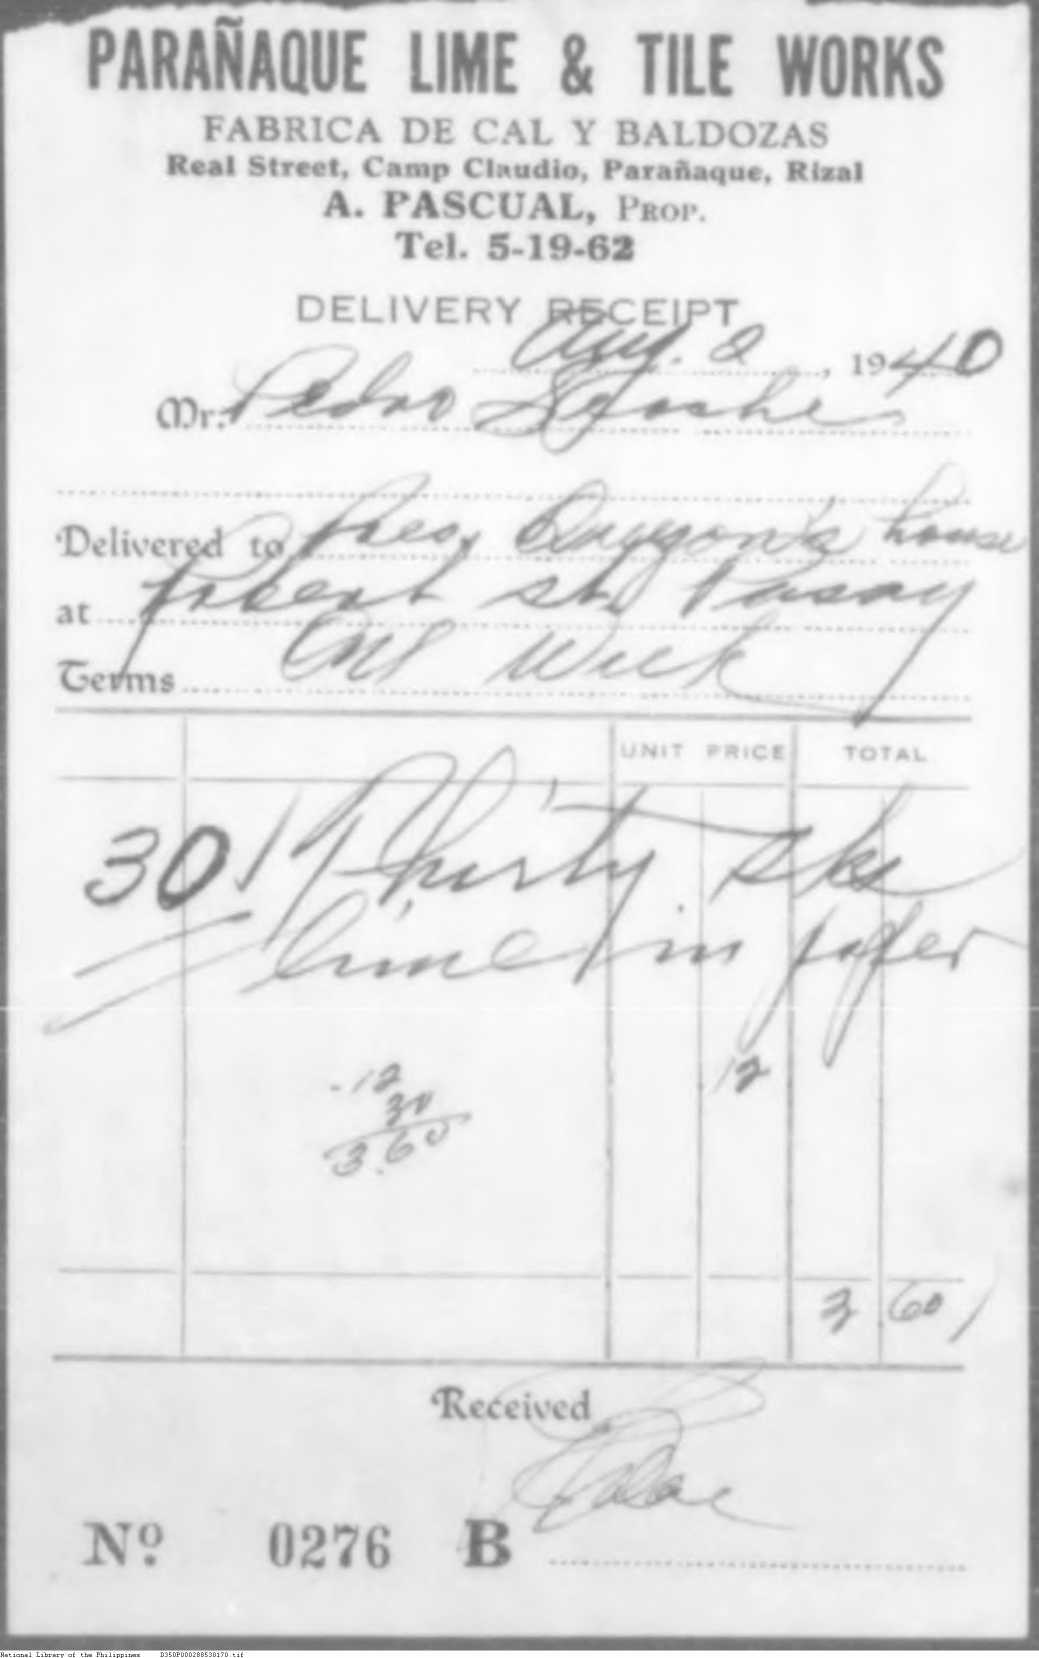 PARAÑAQUE LIME & TILE WORKS
FABRICA DE CAL Y BALDOZAS
Real Street, Camp Claudio, Parañaque, Rizal
A. PASCUAL, PROP.
Tel. 5-19-62
DELIVERY RECEIPT
Aug. 2, 1940
Mr. Pedro
Delivered to Pres. Quezon's house
at Robert st. Pasay
Terms One Week
UNIT PRICE TOTAL
30 / Thirty sks
lime in paper
12
.12
30
3.60
3 60
Received
No. 0276 B
National Library of the Philippines D350P000288530170.tif